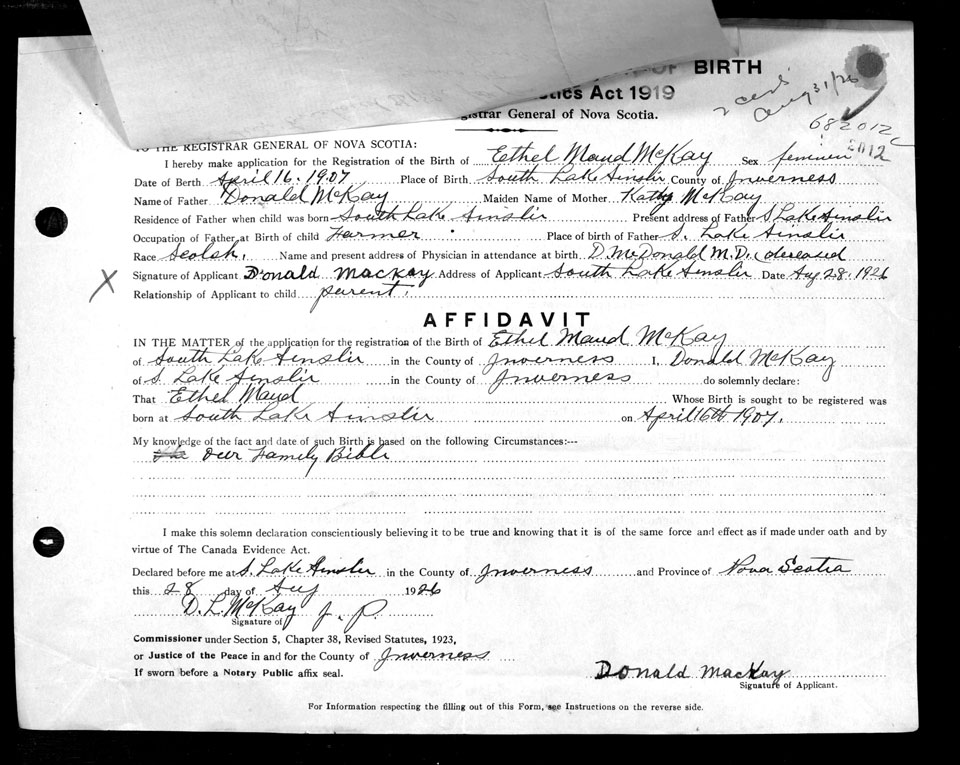 OF BIRTH
tics Act 1919
gistrar General of Nova Scotia.
Aug 31/26
682012
2012
TO THE REGISTRAR GENERAL OF NOVA SCOTIA:
I hereby make application for the Registration of the Birth of Ethel Maud McKay Sex feminen
Date of Birth April 16. 1907 Place of Birth South Lake Ainslir County of Inverness
Name of Father Donald McKay Maiden Name of Mother Kathy McKay
Residence of Father when child was born South Lake Ainslir Present address of Father S Lake Ainslir
Occupation of Father at Birth of child Farmer Place of birth of Father S. Lake Ainslir
Race Scotch. Name and present address of Physician in attendance at birth D. McDonald M.D. (deceased
X Signature of Applicant Donald Mackay Address of Applicant South Lake Ainslir Date Aug 28. 1926
Relationship of Applicant to child parent.
AFFIDAVIT
IN THE MATTER of the application for the registration of the Birth of Ethel Maud McKay
of South Lake Ainslir in the County of Inverness I, Donald McKay
of S. Lake Ainslir in the County of Inverness do solemnly declare:
That Ethel Maud Whose Birth is sought to be registered was
born at South Lake Ainslir on April 16th 1907.
My knowledge of the fact and date of such Birth is based on the following Circumstances:---
Our Family Bible
I make this solemn declaration conscientiously believing it to be true and knowing that it is of the same force and effect as if made under oath and by
virtue of The Canada Evidence Act.
Declared before me at S. Lake Ainslir in the County of Inverness and Province of Nova Scotia
this 28 day of Aug 1926
D. L. McKay J. P.
Signature of
Commissioner under Section 5, Chapter 38, Revised Statutes, 1923,
or Justice of the Peace in and for the County of Inverness
If sworn before a Notary Public affix seal.
Donald Mackay
Signature of Applicant.
For Information respecting the filling out of this Form, see Instructions on the reverse side.